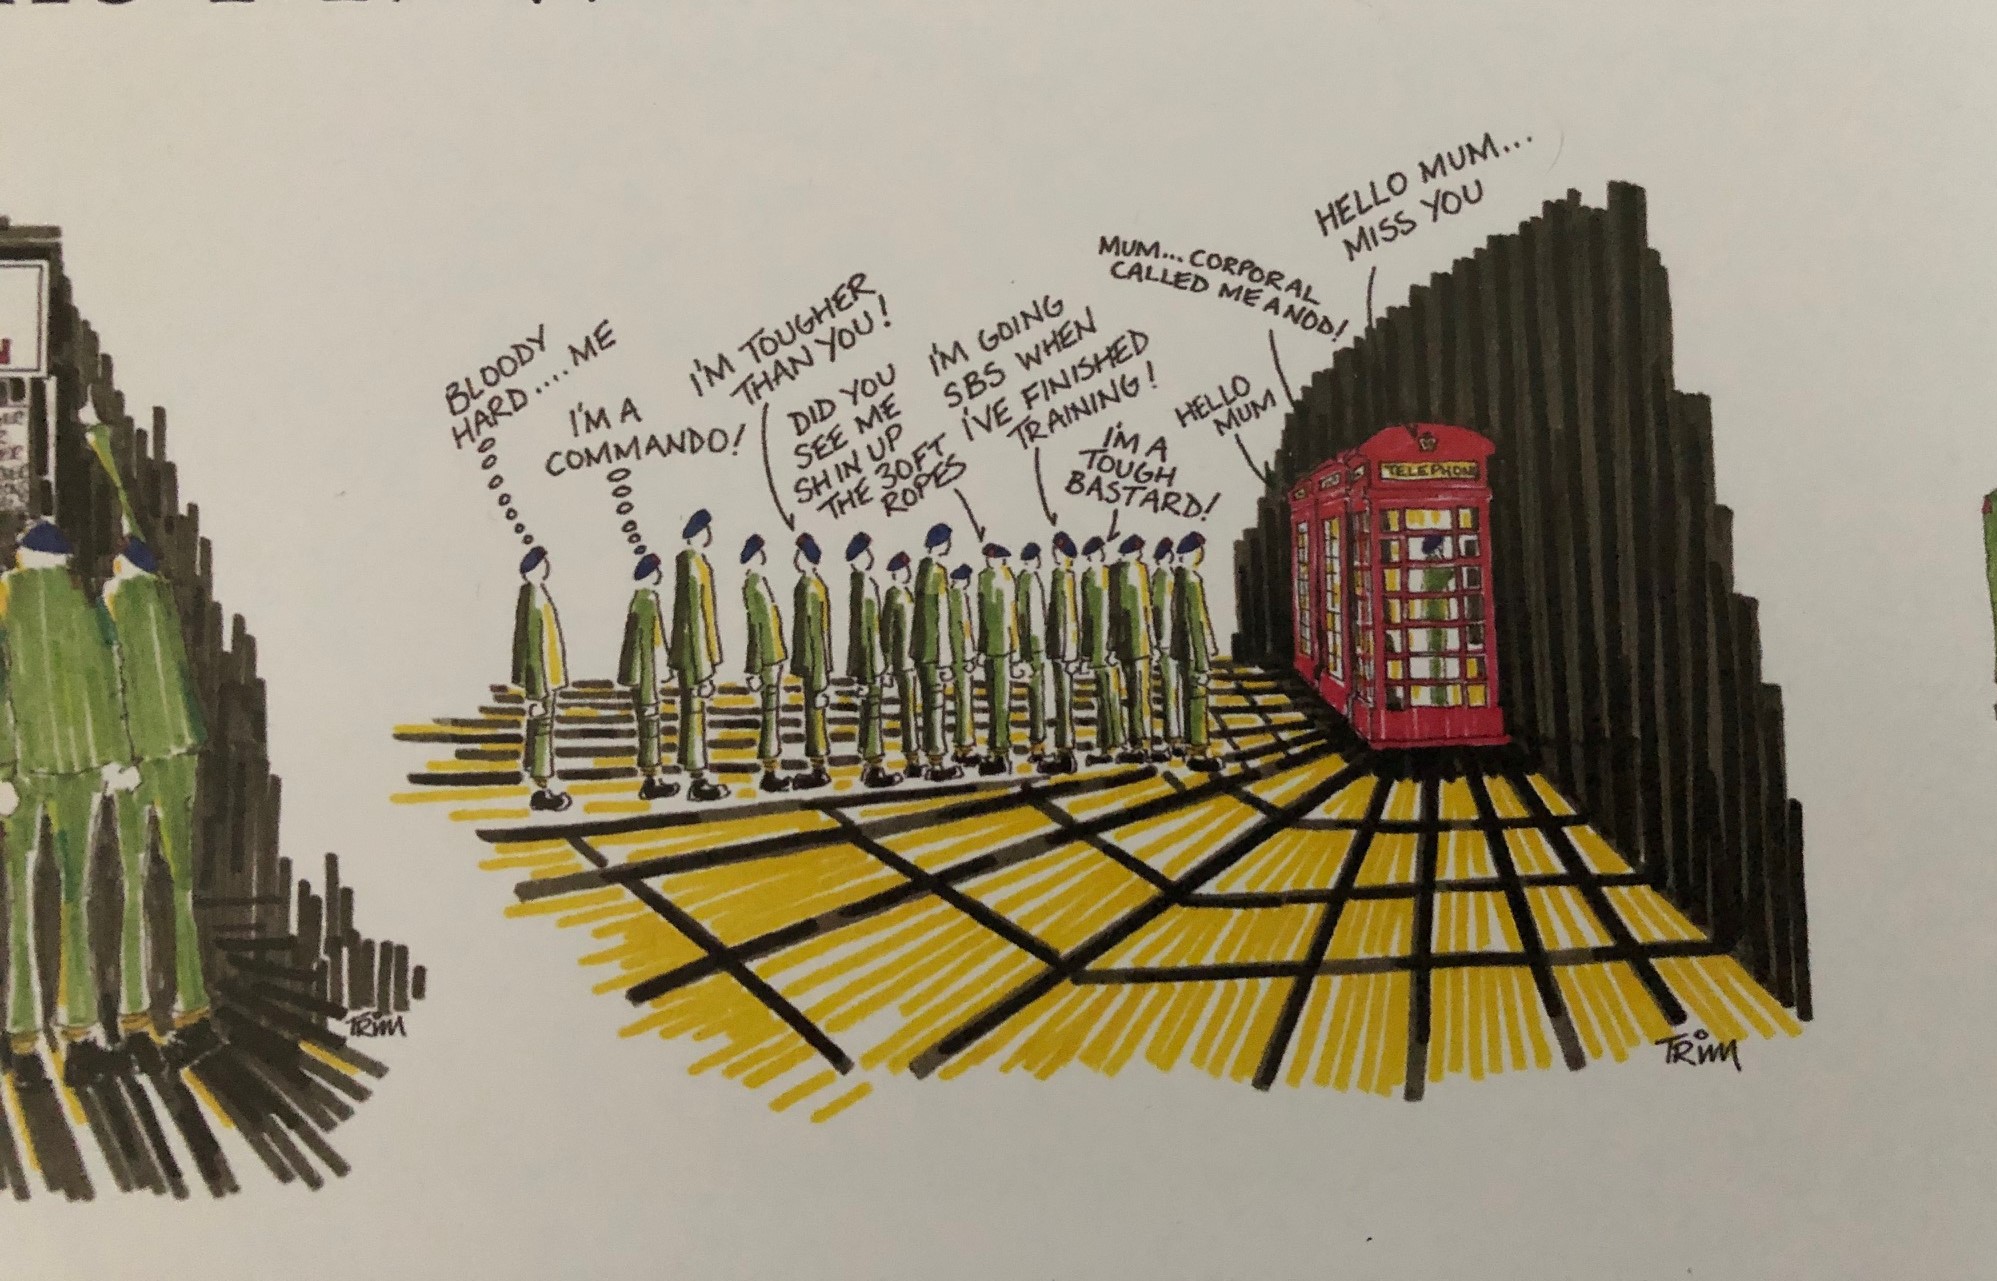 BLOODY
HARD....ME
I'M A
COMMANDO!
I'M TOUGHER
THAN YOU!
DID YOU
SEE ME
SHIN UP
THE 30FT
ROPES
I'M GOING
SBS WHEN
I'VE FINISHED
TRAINING!
I'M A
TOUGH
BASTARD!
HELLO
MUM
MUM...CORPORAL
CALLED ME A NOD!
HELLO MUM...
MISS YOU
TELEPHONE
TRIM
TRIM